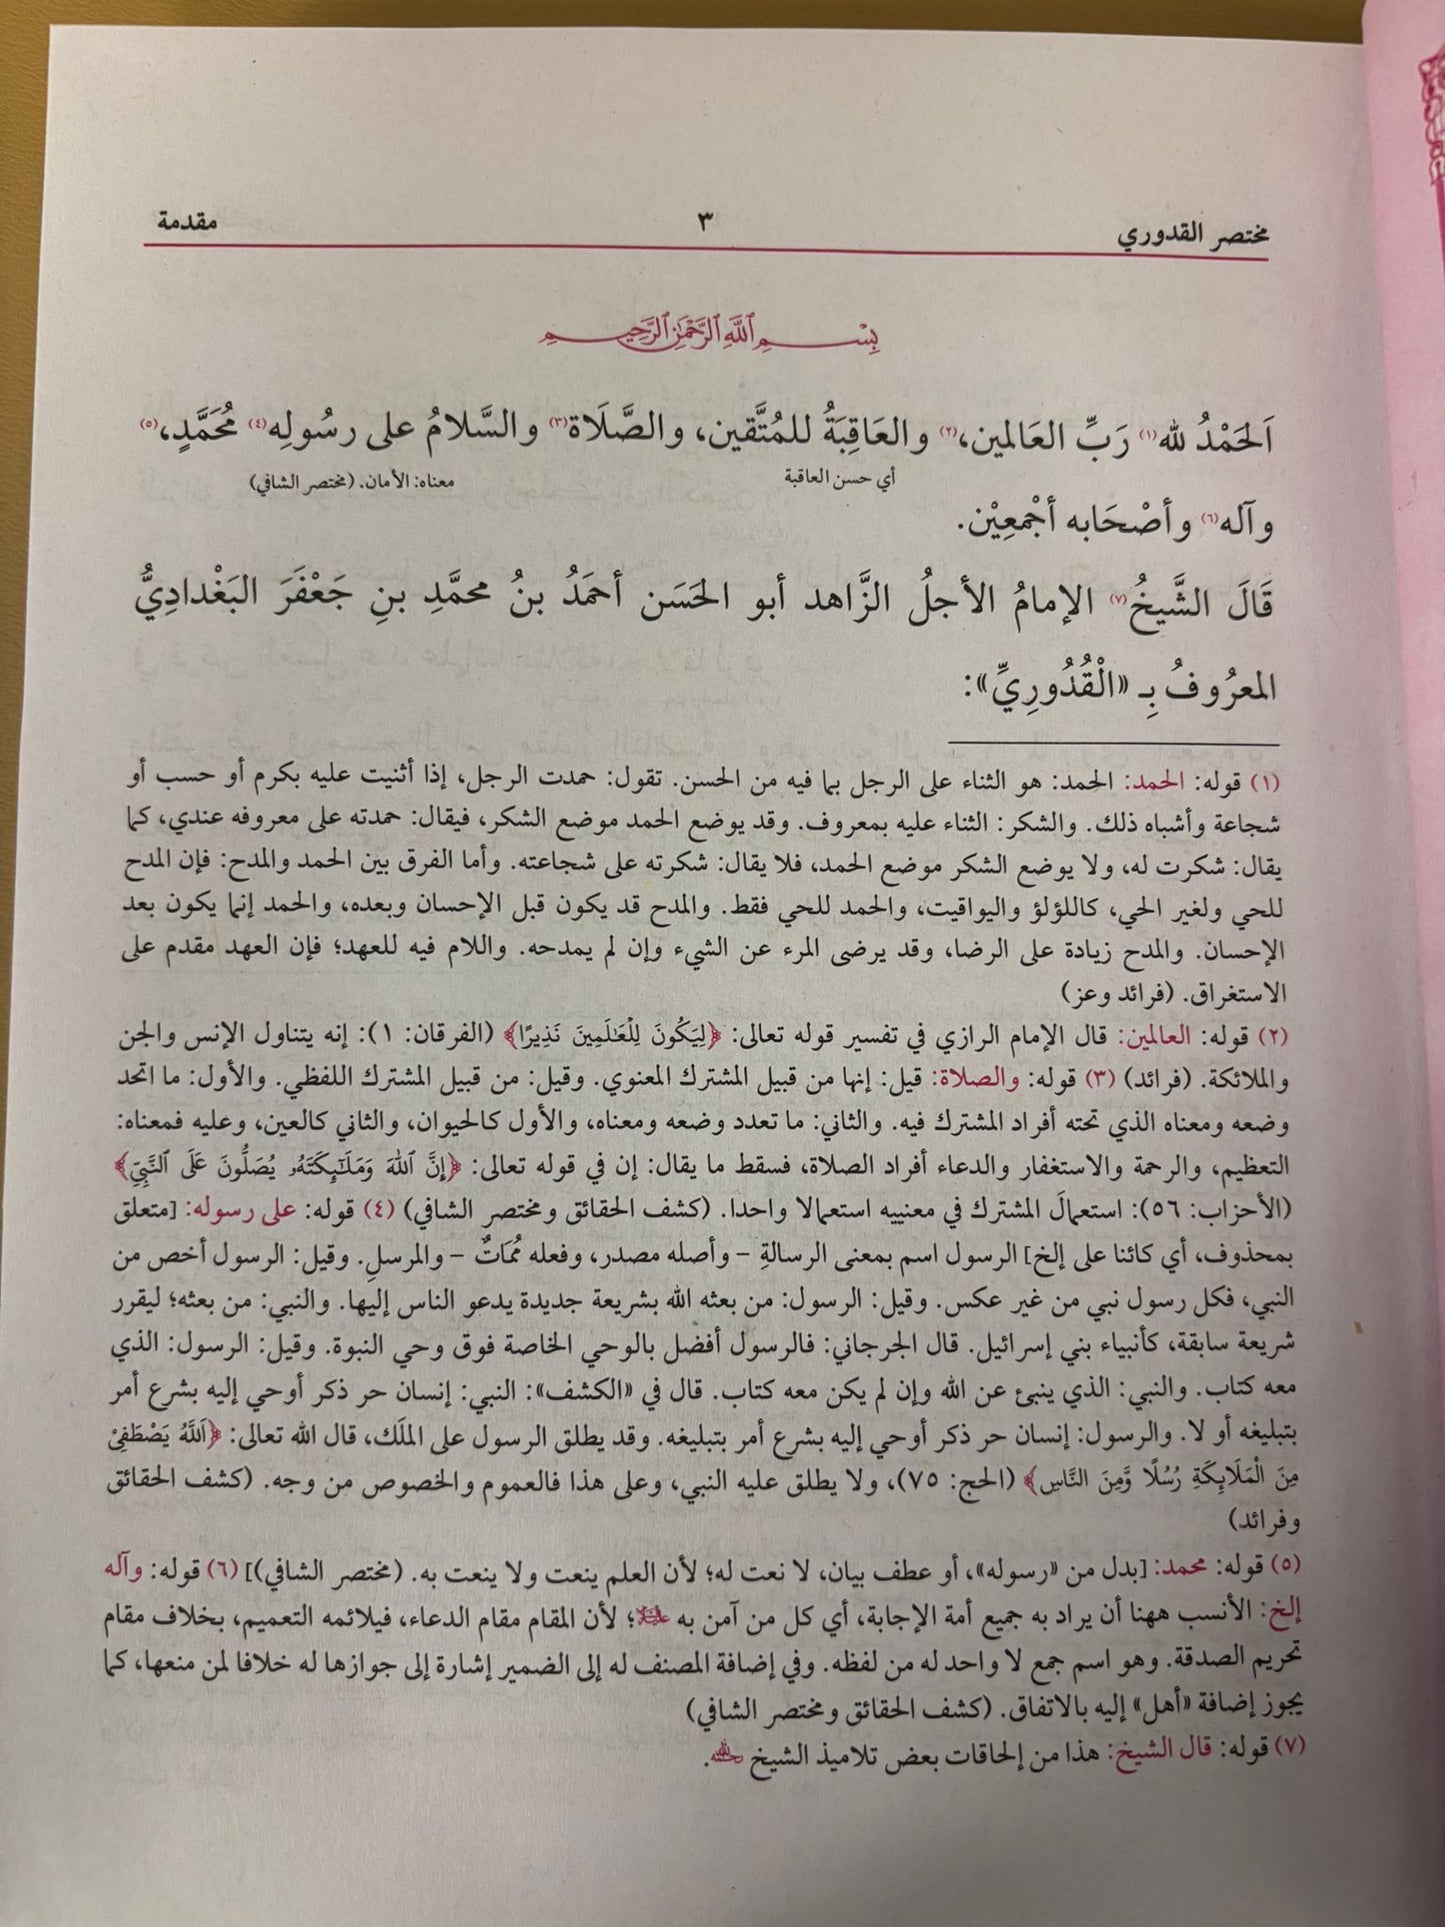 مختصر القدوري ٣ مقدمة
بِسْمِ ٱللَّهِ ٱلرَّحْمَٰنِ ٱلرَّحِيمِ
اَلحَمْدُ لله(١) رَبِّ العَالمين،(٢) والعَاقِبَةُ للمُتَّقين، والصَّلَاة(٣) والسَّلامُ على رسُولِه(٤) مُحَمَّدٍ،(٥)
أي حسن العاقبة معناه: الأمان. (مختصر الشافي)
وآله(٦) وأصْحَابه أجْمعِيْن.
قَالَ الشَّيخُ(٧) الإمامُ الأجلُ الزَّاهد أبو الحَسَن أحمَدُ بنُ محمَّدِ بنِ جَعْفَرَ البَغْدادِيُّ
المعرُوفُ بِـ «الْقُدُورِيِّ»:
(١) قوله: الحمد: الحمد: هو الثناء على الرجل بما فيه من الحسن. تقول: حمدت الرجل، إذا أثنيت عليه بكرم أو حسب أو
شجاعة وأشباه ذلك. والشكر: الثناء عليه بمعروف. وقد يوضع الحمد موضع الشكر، فيقال: حمدته على معروفه عندي، كما
يقال: شكرت له، ولا يوضع الشكر موضع الحمد، فلا يقال: شكرته على شجاعته. وأما الفرق بين الحمد والمدح: فإن المدح
للحي ولغير الحي، كاللؤلؤ واليواقيت، والحمد للحي فقط. والمدح قد يكون قبل الإحسان وبعده، والحمد إنما يكون بعد
الإحسان. والمدح زيادة على الرضا، وقد يرضى المرء عن الشيء وإن لم يمدحه. واللام فيه للعهد؛ فإن العهد مقدم على
الاستغراق. (فرائد وعز)
(٢) قوله: العالمين: قال الإمام الرازي في تفسير قوله تعالى: ﴿لِيَكُونَ لِلْعَٰلَمِينَ نَذِيرًا﴾ (الفرقان: ١): إنه يتناول الإنس والجن
والملائكة. (فرائد) (٣) قوله: والصلاة: قيل: إنها من قبيل المشترك المعنوي. وقيل: من قبيل المشترك اللفظي. والأول: ما اتحد
وضعه ومعناه الذي تحته أفراد المشترك فيه. والثاني: ما تعدد وضعه ومعناه، والأول كالحيوان، والثاني كالعين، وعليه فمعناه:
التعظيم، والرحمة والاستغفار والدعاء أفراد الصلاة، فسقط ما يقال: إن في قوله تعالى: ﴿إِنَّ ٱللَّهَ وَمَلَٰٓئِكَتَهُۥ يُصَلُّونَ عَلَى ٱلنَّبِيِّ﴾
(الأحزاب: ٥٦): استعمالَ المشترك في معنييه استعمالا واحدا. (كشف الحقائق ومختصر الشافي) (٤) قوله: على رسوله: [متعلق
بمحذوف، أي كائنا على إلخ] الرسول اسم بمعنى الرسالةِ – وأصله مصدر، وفعله مُمَاتٌ – والمرسلِ. وقيل: الرسول أخص من
النبي، فكل رسول نبي من غير عكس. وقيل: الرسول: من بعثه الله بشريعة جديدة يدعو الناس إليها. والنبي: من بعثه؛ ليقرر
شريعة سابقة، كأنبياء بني إسرائيل. قال الجرجاني: فالرسول أفضل بالوحي الخاصة فوق وحي النبوة. وقيل: الرسول: الذي
معه كتاب. والنبي: الذي ينبئ عن الله وإن لم يكن معه كتاب. قال في «الكشف»: النبي: إنسان حر ذكر أوحي إليه بشرع أمر
بتبليغه أو لا. والرسول: إنسان حر ذكر أوحي إليه بشرع أمر بتبليغه. وقد يطلق الرسول على الملَك، قال الله تعالى: ﴿اَللَّهُ يَصْطَفِيْ
مِنَ الْمَلَايِكَةِ رُسُلًا وَّمِنَ النَّاسِ﴾ (الحج: ٧٥)، ولا يطلق عليه النبي، وعلى هذا فالعموم والخصوص من وجه. (كشف الحقائق
وفرائد)
(٥) قوله: محمد: [بدل من «رسوله»، أو عطف بيان، لا نعت له؛ لأن العلم ينعت ولا ينعت به. (مختصر الشافي)] (٦) قوله: وآله
إلخ: الأنسب ههنا أن يراد به جميع أمة الإجابة، أي كل من آمن به ؛ لأن المقام مقام الدعاء، فيلائمه التعميم، بخلاف مقام
تحريم الصدقة. وهو اسم جمع لا واحد له من لفظه. وفي إضافة المصنف له إلى الضمير إشارة إلى جوازها له خلافا لمن منعها، كما
يجوز إضافة «أهل» إليه بالاتفاق. (كشف الحقائق ومختصر الشافي)
(٧) قوله: قال الشيخ: هذا من إلحاقات بعض تلاميذ الشيخ .